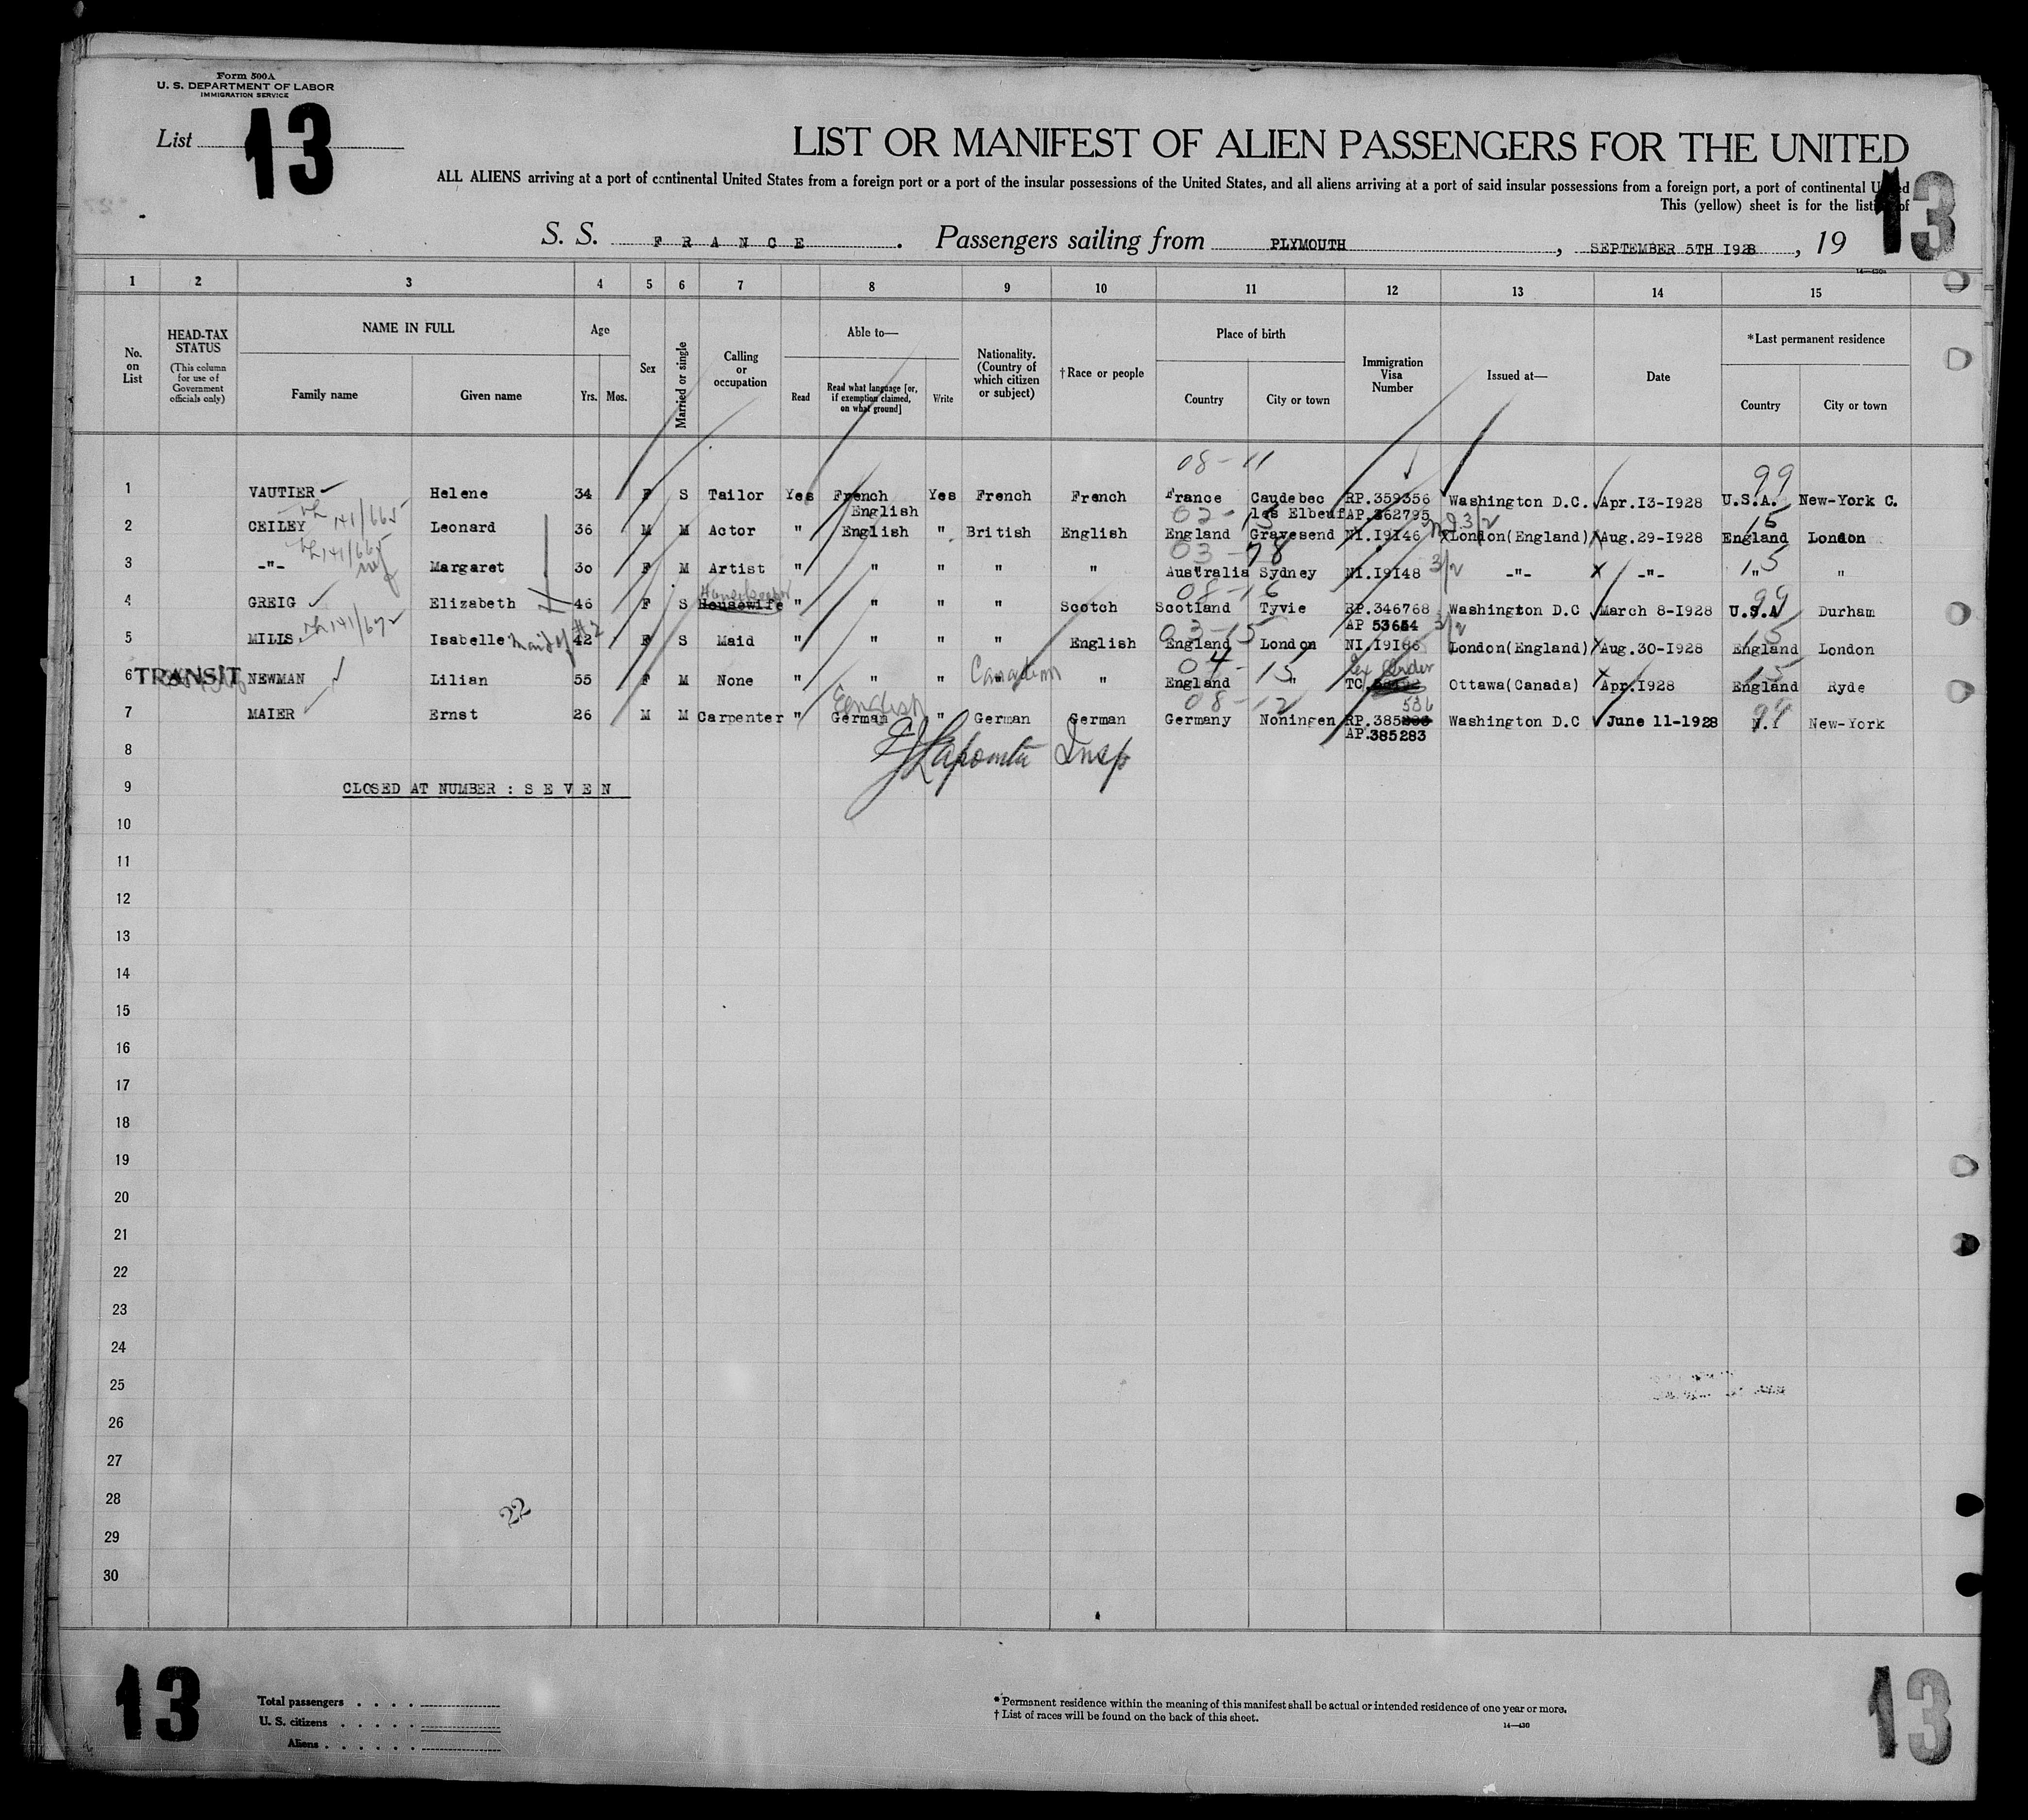 Form 500A
U. S. DEPARTMENT OF LABOR
IMMIGRATION SERVICE
List 13
LIST OR MANIFEST OF ALIEN PASSENGERS FOR THE UNITED
ALL ALIENS arriving at a port of continental United States from a foreign port or a port of the insular possessions of the United States, and all aliens arriving at a port of said insular possessions from a foreign port, a port of continental United
This (yellow) sheet is for the listing of
13
S. S. FRANCE. Passengers sailing from PLYMOUTH, SEPTEMBER 5TH I928, 19
1 2 3 4 5 6 7 8 9 10 11 12 13 14 15
No. on List
HEAD-TAX STATUS (This column for use of Government officials only)
NAME IN FULL
Family name Given name
Age
Yrs. Mos.
Sex
Married or single
Calling or occupation
Able to—
Read Read what language [or, if exemption claimed, on what ground] Write
Nationality. (Country of which citizen or subject)
†Race or people
Place of birth
Country City or town
Immigration Visa Number
Issued at—
Date
*Last permanent residence
Country City or town
08-11 99
1 VAUTIER Helene 34 F S Tailor Yes French Yes French French France Caudebec RP.359356 Washington D.C. Apr.I3-I928 U.S.A. New-York C.
141/665 English les Elbeuf AP.362795
02-15 3/2 15
2 CEILEY Leonard 36 M M Actor " English " British English England Gravesend NI.I9I46 London(England) Aug.29-I928 England London
141/665 03-78 3/2 15
3 -"- Margaret 30 F M Artist " " " " " Australia Sydney NI.I9I48 -"- -"- " "
Housekeeper 08-16 99
4 GREIG Elizabeth 46 F S Housewife " " " " Scotch Scotland Tyvie RP.346768 Washington D.C March 8-I928 U.S.A Durham
AP 53654
141/672 03-15 3/2 15
5 MILLS Isabelle maid of #2 42 F S Maid " " " " English England London NI.I9I86 London(England) Aug.30-I928 England London
04-15 15
6 TRANSIT NEWMAN Lilian 55 F M None " " " Canadian " England " TC Ottawa(Canada) Apr.I928 England Ryde
English 08-12 536 99
7 MAIER Ernst 26 M M Carpenter " German " German German Germany Noningen RP.385 Washington D.C June 11-1928 N.Y New-York
AP.385283
8
Insp
9 CLOSED AT NUMBER : S E V E N
10
11
12
13
14
15
16
17
18
19
20
21
22
23
24
25
26
27
28
22
29
30
13
Total passengers . . . .
U. S. citizens . . . . .
Aliens . . . . . .
* Permanent residence within the meaning of this manifest shall be actual or intended residence of one year or more.
† List of races will be found on the back of this sheet.
14—430
13